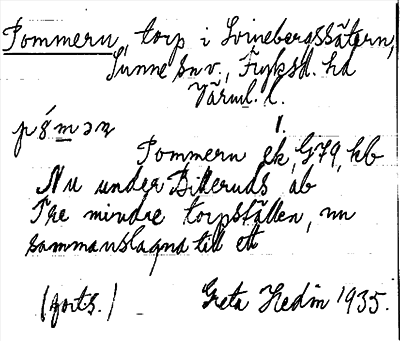 Pommern, torp i Svinebergssätern,
Sunne sn v., Fryksd. hd
Värml. l.
1.
Pommern ek, G79, kb
Nu under Billeruds ab
Tre mindre torpställen, nu
sammanslagna till ett
(forts.) Greta Hedin 1935.